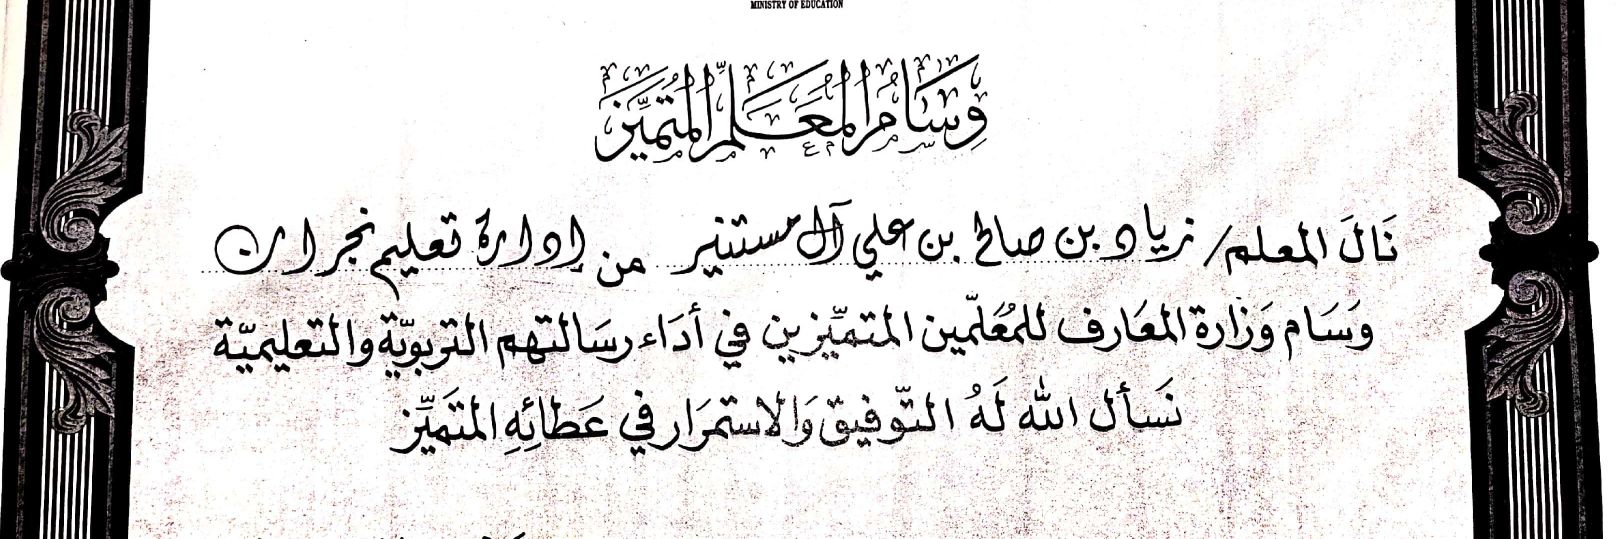 MINISTRY OF EDUCATION
وِسَامُ المُعَلِّمِ المُتَمَيِّز
نَالَ المعلم/ زياد بن صالح بن علي آل مستنير من إدارة تعليم نجران
وسَام وَزارة المعَارف للمُعَلّمين المتميّزين في أدَاء رسَالتهم التربويّة والتعليميّة
نسَأل الله لَهُ التّوفيق وَالاستمرَار في عَطائِهِ المتَميِّز